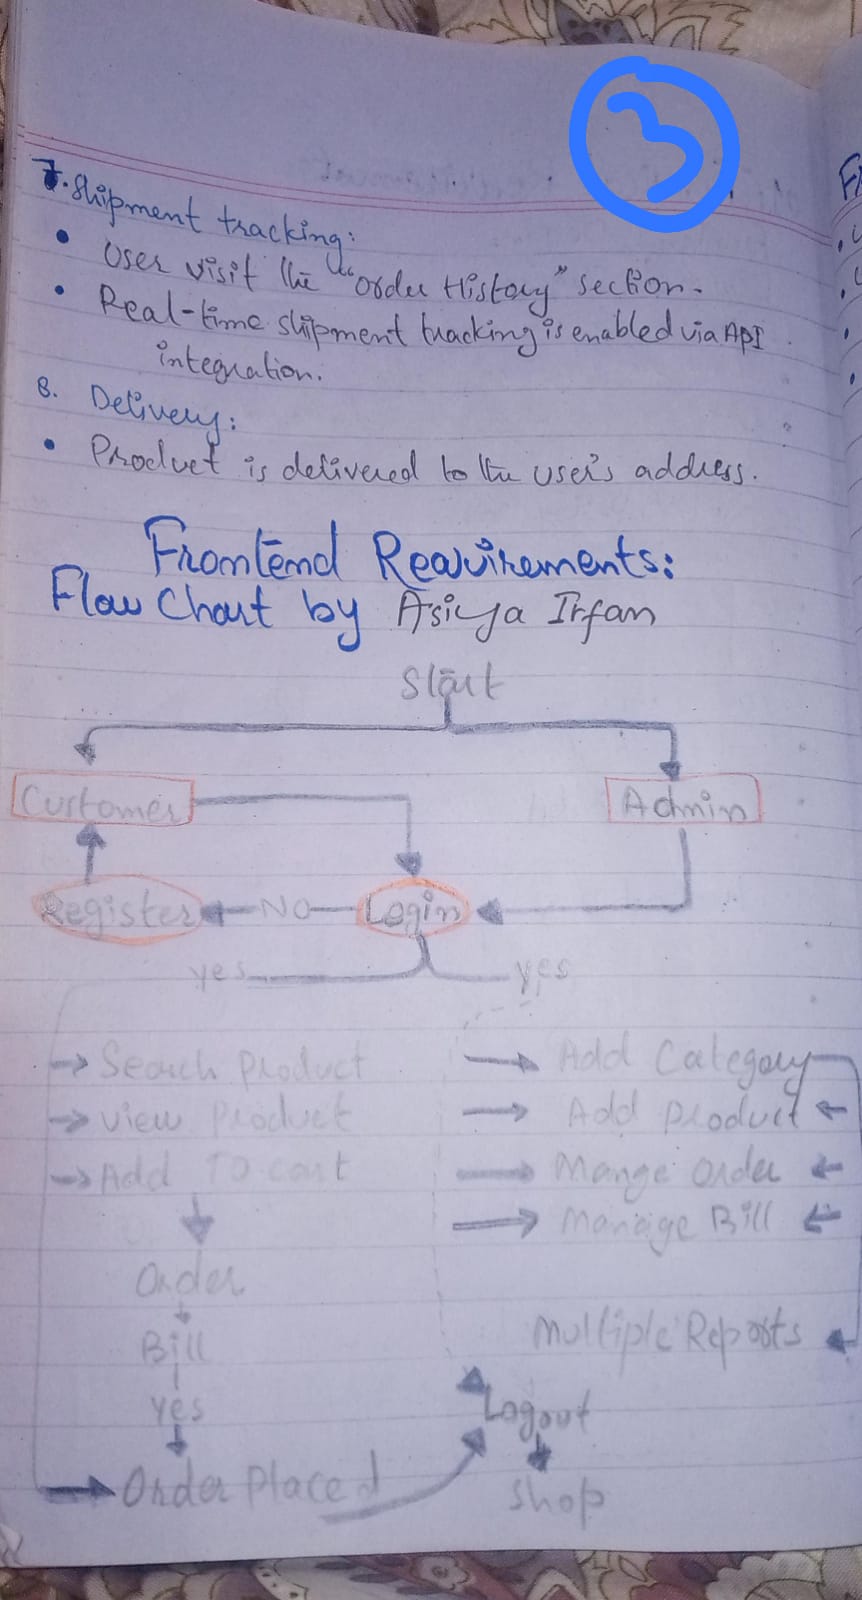 3
7. Shipment tracking:
• User visit the "Order History" section.
• Real-time shipment tracking is enabled via API
integration.
8. Delivery:
• Product is delivered to the user's address.
Frontend Requirements:
Flow Chart by Asiya Irfan
Start
Customer Admin
Register NO Login
yes yes
→ Search Product → Add Category
→ View Product → Add product ←
→ Add To cart → Mange order ←
→ Manage Bill ←
Order
Bill
Multiple Reports
yes
Logout
Order Placed
Shop